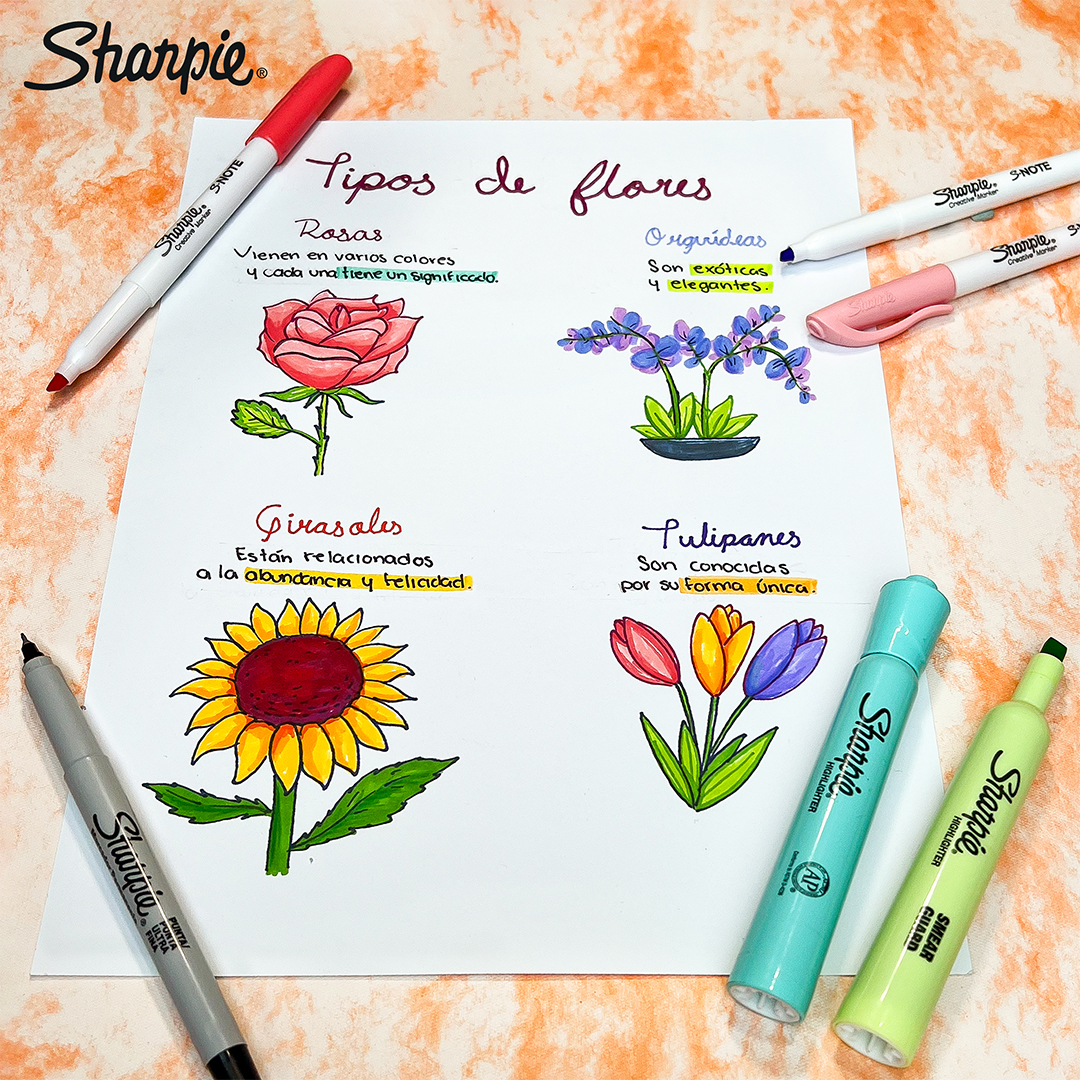 Sharpie®
Tipos de flores
Rosas
Vienen en varios colores
y cada una tiene un significado.
Orquídeas
Son exóticas
y elegantes.
Girasoles
Están relacionados
a la abundancia y felicidad.
Tulipanes
Son conocidas
por su forma única.
Sharpie®
Creative Marker
S·NOTE
Sharpie®
Creative Marker
S·NOTE
Sharpie®
Creative Marker
Sharpie
Sharpie®
PUNTA/
PUNTA
ULTRA
FINA
Sharpie®
HIGHLIGHTER
AP
Sharpie®
HIGHLIGHTER
SMEAR
GUARD